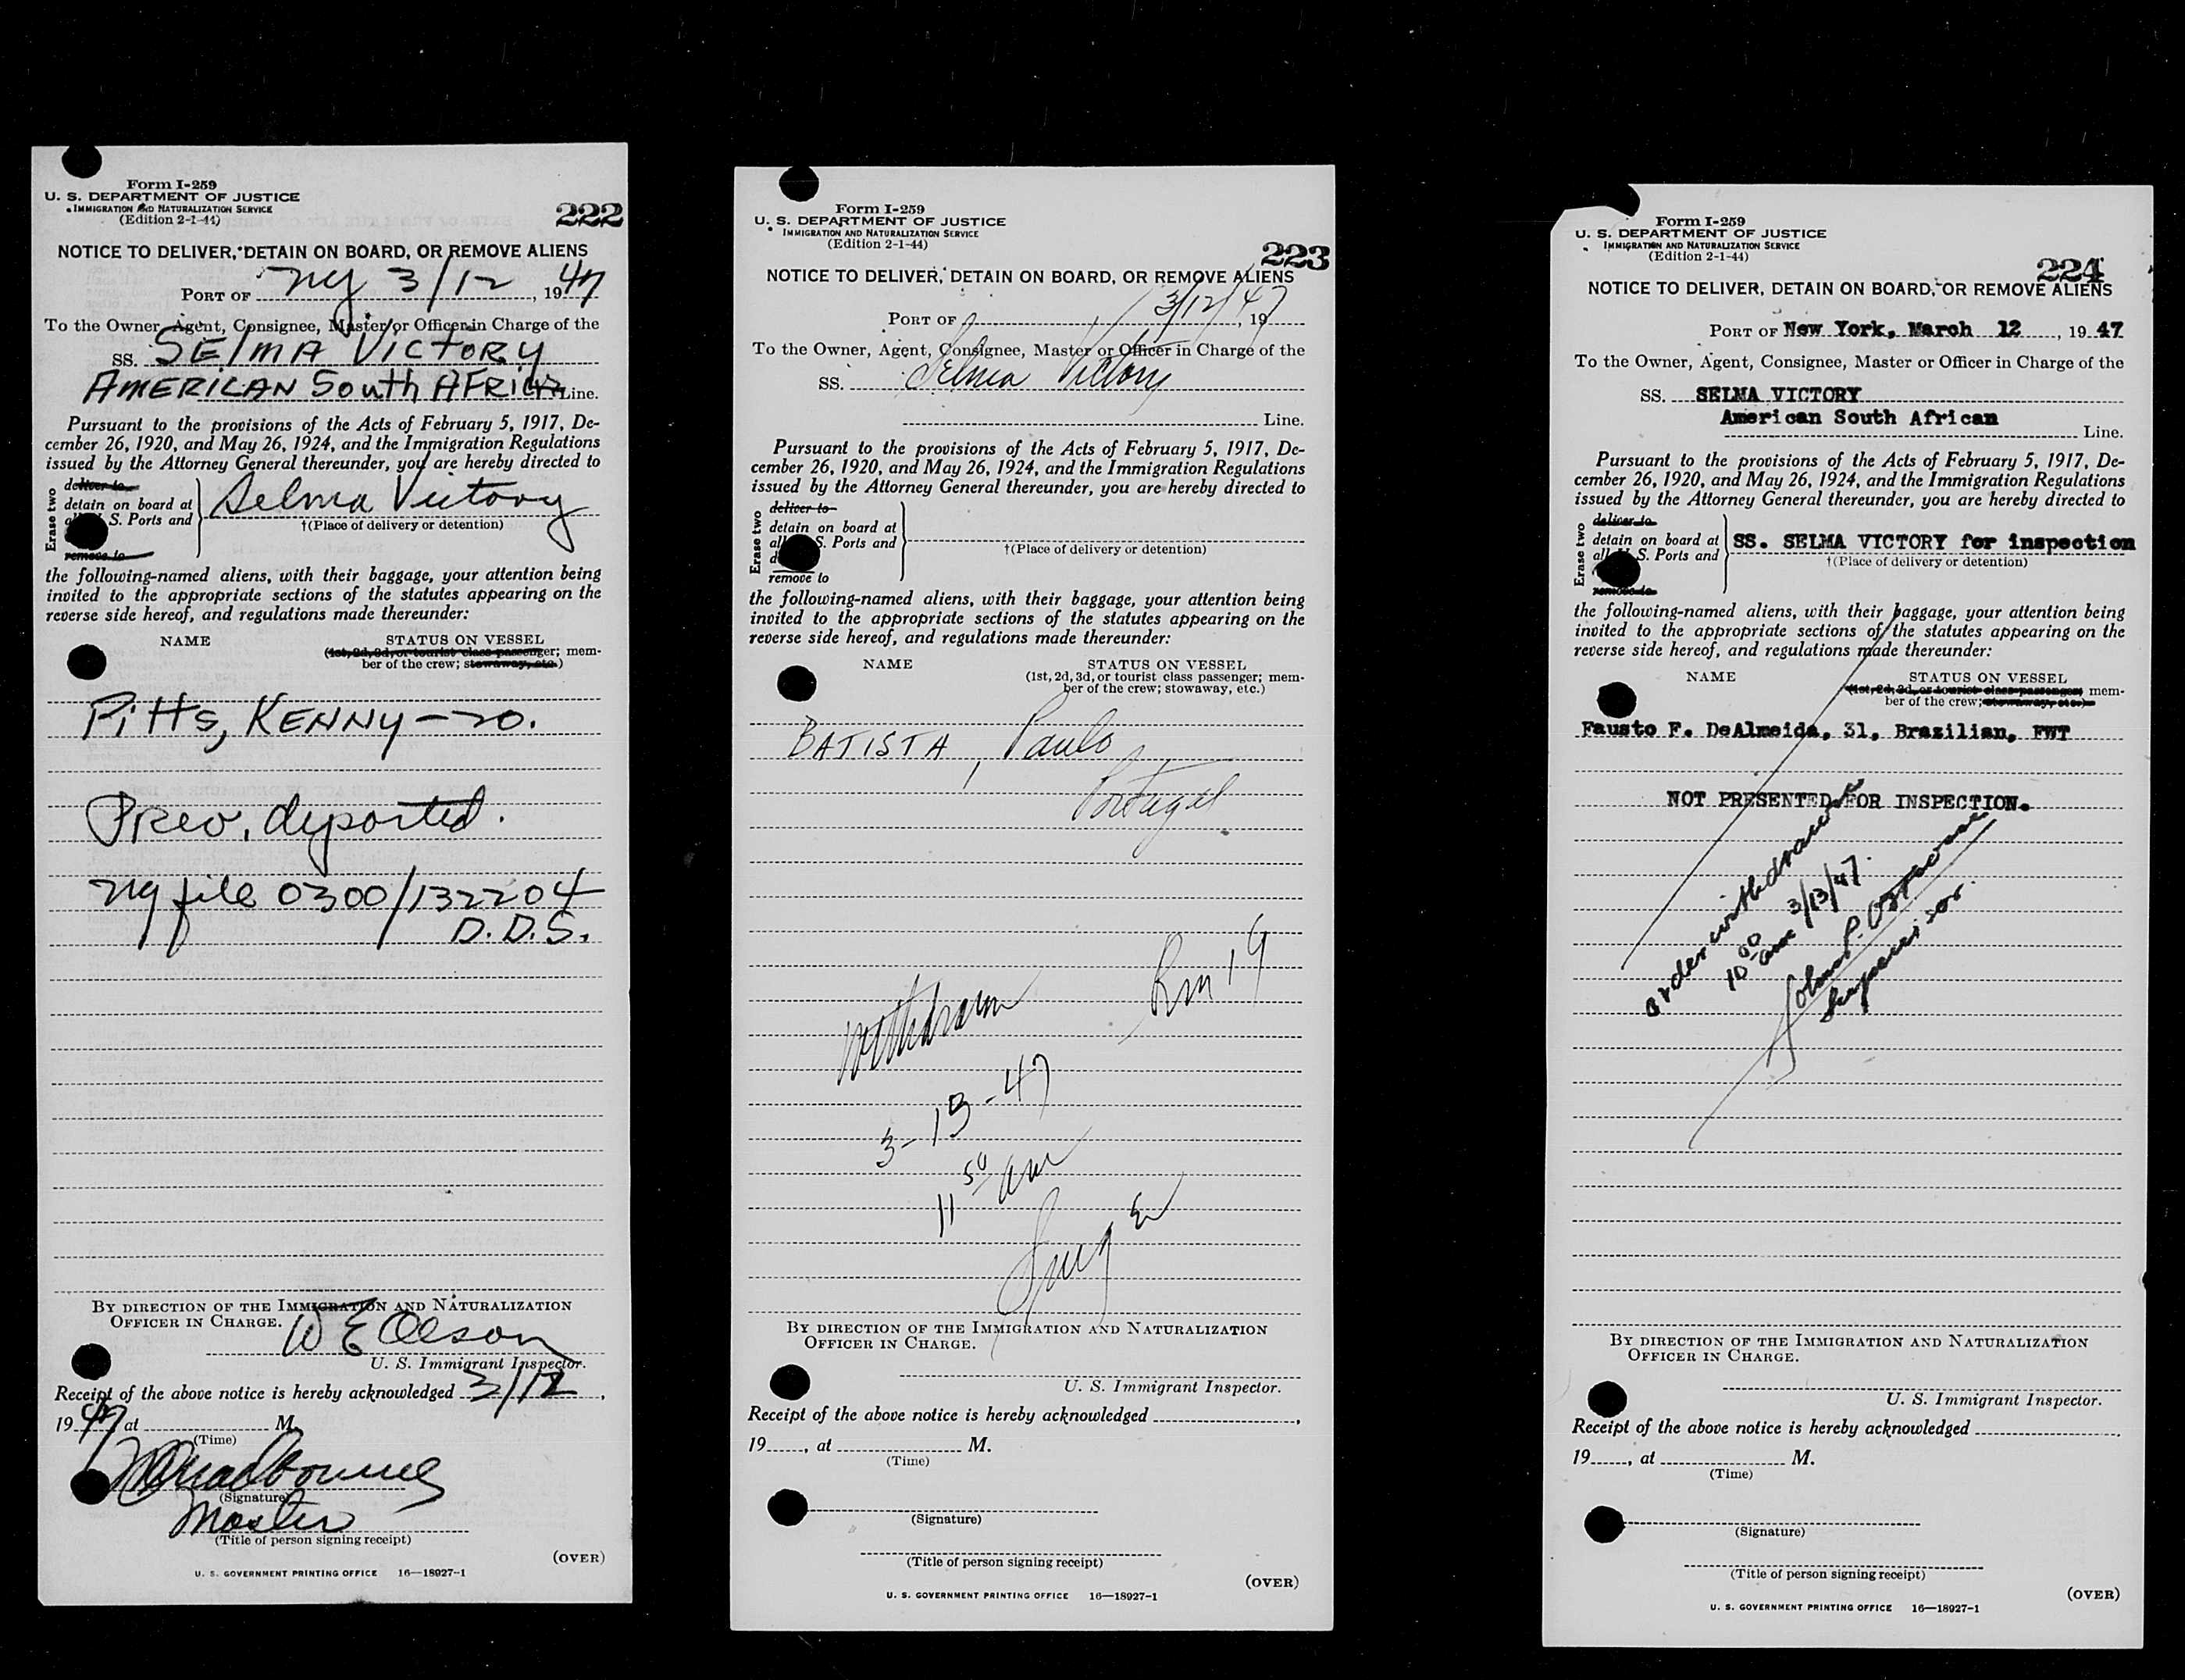 Form I-259
U. S. DEPARTMENT OF JUSTICE
IMMIGRATION AND NATURALIZATION SERVICE
(Edition 2-1-44)
222
NOTICE TO DELIVER, DETAIN ON BOARD, OR REMOVE ALIENS
PORT OF NY 3/12, 1947
To the Owner, Agent, Consignee, Master or Officer in Charge of the
SS. SELMA VICTORY
AMERICAN South AFRICA Line.
Pursuant to the provisions of the Acts of February 5, 1917, De-
cember 26, 1920, and May 26, 1924, and the Immigration Regulations
issued by the Attorney General thereunder, you are hereby directed to
Erase two
deliver to
detain on board at
S. Ports and
remove to
Selma Victory
†(Place of delivery or detention)
the following-named aliens, with their baggage, your attention being
invited to the appropriate sections of the statutes appearing on the
reverse side hereof, and regulations made thereunder:
NAME STATUS ON VESSEL
(1st, 2d, 3d, or tourist class passenger; mem-
ber of the crew; stowaway, etc.)
Pitts, KENNY - 20.
Prev. deported.
NY file 0300/132204
D.D.S.
BY DIRECTION OF THE IMMIGRATION AND NATURALIZATION
OFFICER IN CHARGE.
W E Olson
U. S. Immigrant Inspector.
Receipt of the above notice is hereby acknowledged 3/12,
1947 at M.
(Time)
(Signature)
Master
(Title of person signing receipt)
(OVER)
U. S. GOVERNMENT PRINTING OFFICE 16—18927-1
Form I-259
U. S. DEPARTMENT OF JUSTICE
IMMIGRATION AND NATURALIZATION SERVICE
(Edition 2-1-44)
223
NOTICE TO DELIVER, DETAIN ON BOARD, OR REMOVE ALIENS
3/12/47
PORT OF , 19
To the Owner, Agent, Consignee, Master or Officer in Charge of the
SS. Selma Victory
Line.
Pursuant to the provisions of the Acts of February 5, 1917, De-
cember 26, 1920, and May 26, 1924, and the Immigration Regulations
issued by the Attorney General thereunder, you are hereby directed to
Erase two
deliver to
detain on board at
all S. Ports and
remove to
†(Place of delivery or detention)
the following-named aliens, with their baggage, your attention being
invited to the appropriate sections of the statutes appearing on the
reverse side hereof, and regulations made thereunder:
NAME STATUS ON VESSEL
(1st, 2d, 3d, or tourist class passenger; mem-
ber of the crew; stowaway, etc.)
BATISTA, Paulo
Portugal
Rm 19
Withdrawn
3-13-47
11 50 am
BY DIRECTION OF THE IMMIGRATION AND NATURALIZATION
OFFICER IN CHARGE.
U. S. Immigrant Inspector.
Receipt of the above notice is hereby acknowledged ,
19 , at M.
(Time)
(Signature)
(Title of person signing receipt)
(OVER)
U. S. GOVERNMENT PRINTING OFFICE 16—18927-1
Form I-259
U. S. DEPARTMENT OF JUSTICE
IMMIGRATION AND NATURALIZATION SERVICE
(Edition 2-1-44)
224
NOTICE TO DELIVER, DETAIN ON BOARD, OR REMOVE ALIENS
PORT OF New York, March 12, 1947
To the Owner, Agent, Consignee, Master or Officer in Charge of the
SS. SELMA VICTORY
American South African
Line.
Pursuant to the provisions of the Acts of February 5, 1917, De-
cember 26, 1920, and May 26, 1924, and the Immigration Regulations
issued by the Attorney General thereunder, you are hereby directed to
Erase two
deliver to
detain on board at
all U. S. Ports and
remove to
SS. SELMA VICTORY for inspection
†(Place of delivery or detention)
the following-named aliens, with their baggage, your attention being
invited to the appropriate sections of the statutes appearing on the
reverse side hereof, and regulations made thereunder:
NAME STATUS ON VESSEL
(1st, 2d, 3d, or tourist class passenger; mem-
ber of the crew; stowaway, etc.)
Fausto F. DeAlmeida, 31, Brazilian, FWT
NOT PRESENTED FOR INSPECTION.
order withdrawn
10 00 am 3/13/47.
Supervisor.
BY DIRECTION OF THE IMMIGRATION AND NATURALIZATION
OFFICER IN CHARGE.
U. S. Immigrant Inspector.
Receipt of the above notice is hereby acknowledged ,
19 , at M.
(Time)
(Signature)
(Title of person signing receipt)
(OVER)
U. S. GOVERNMENT PRINTING OFFICE 16—18927-1